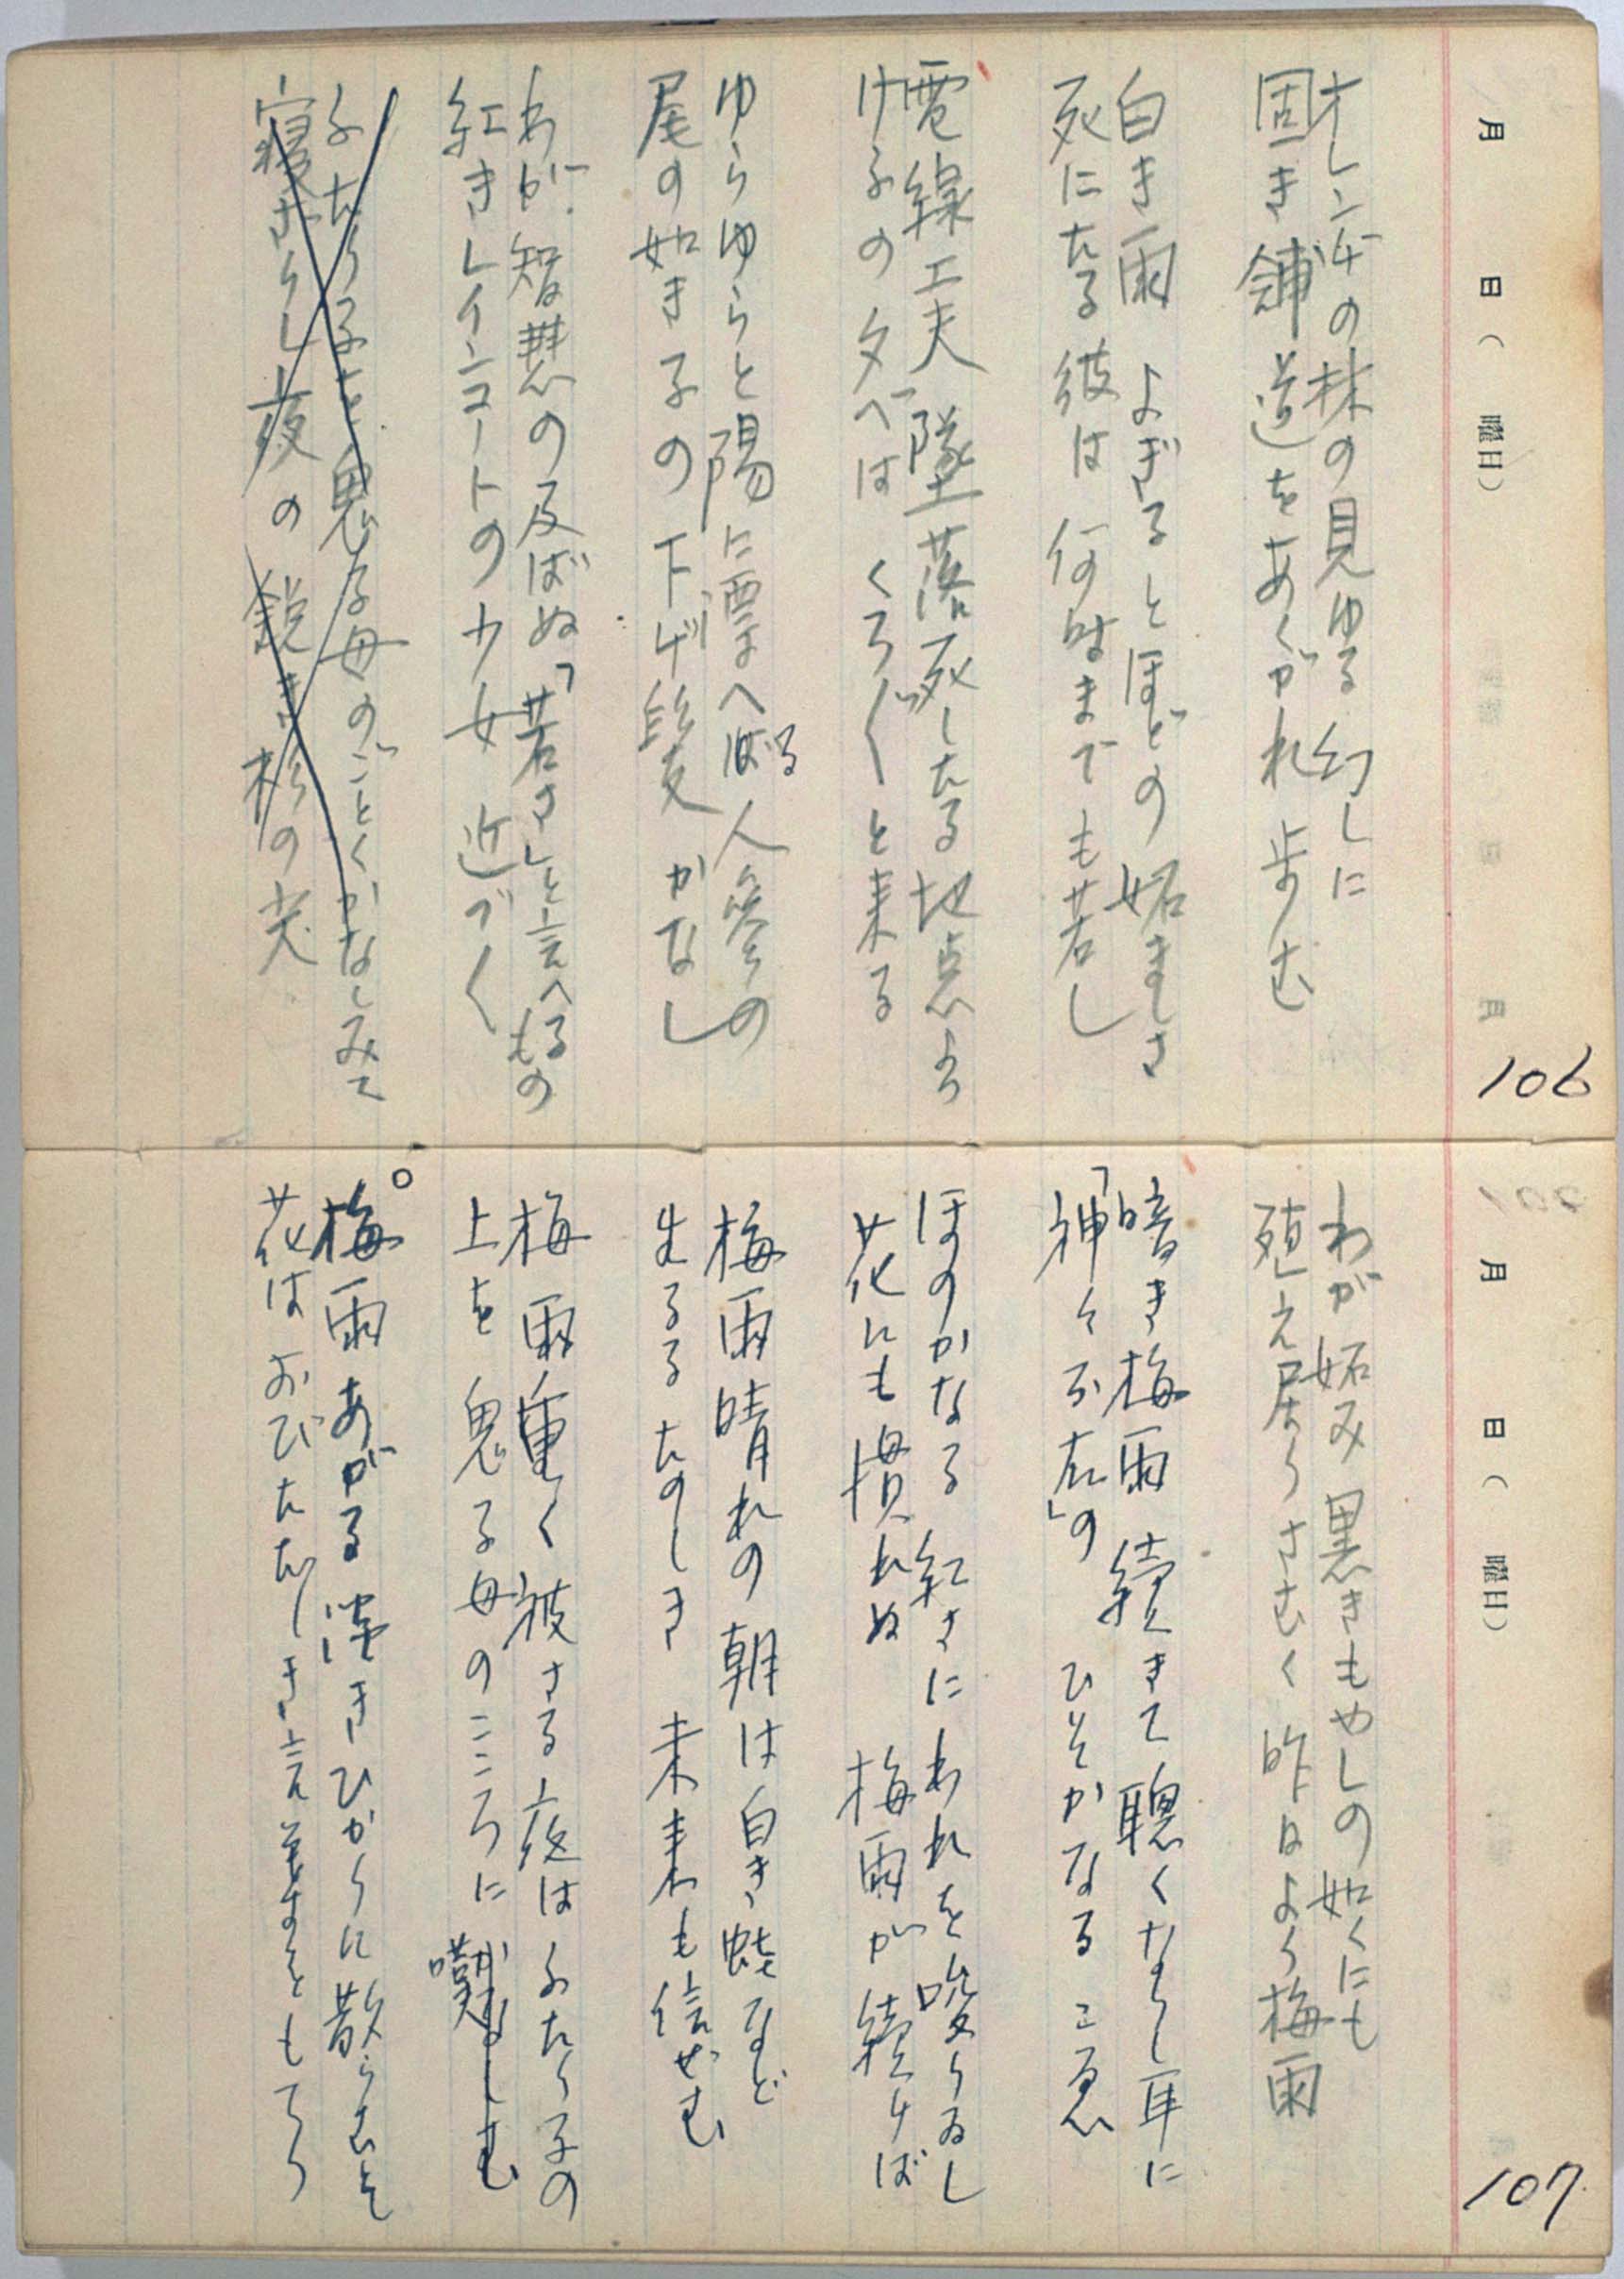 月　日（　曜日）
106
オレンヂの林の見ゆる幻しに
固き舗道をあくがれ歩む
白き雨　よぎるとほどの妬ましさ
死にたる彼は何時までも若し
電線工夫墜落死したる地点より
けふの夕べは　くろぐろと来る
ゆらゆらと陽に透
る人参の
尾の如き子の下げ髪かなし
わが智慧の及ばぬ「若さ」と言へるもの
紅きレインコートの少女近づく
ふたり子を鬼る母のごとくかなしみて
寝ざりし夜の鋭き杉の尖
月　日（　曜日）
107
わが妬み黒きもやしの如くにも
殖え居りさむく昨日より梅雨
暗き梅雨続きて聰くなりし耳に
「神々不在」の　ひそかなるこゑ
ほのかなる紅さにわれを唆りゐし
花にも慣れぬ　梅雨が続けば
梅雨晴れの朝は白き蛾など
生るるたのしき　未来も信ぜむ
梅雨重く被さる夜はふたり子の
上を鬼る母のこころに嘆
かなしむ
○梅雨あがる淡きひかりに散らむと
花はおびただしき言葉をもてり